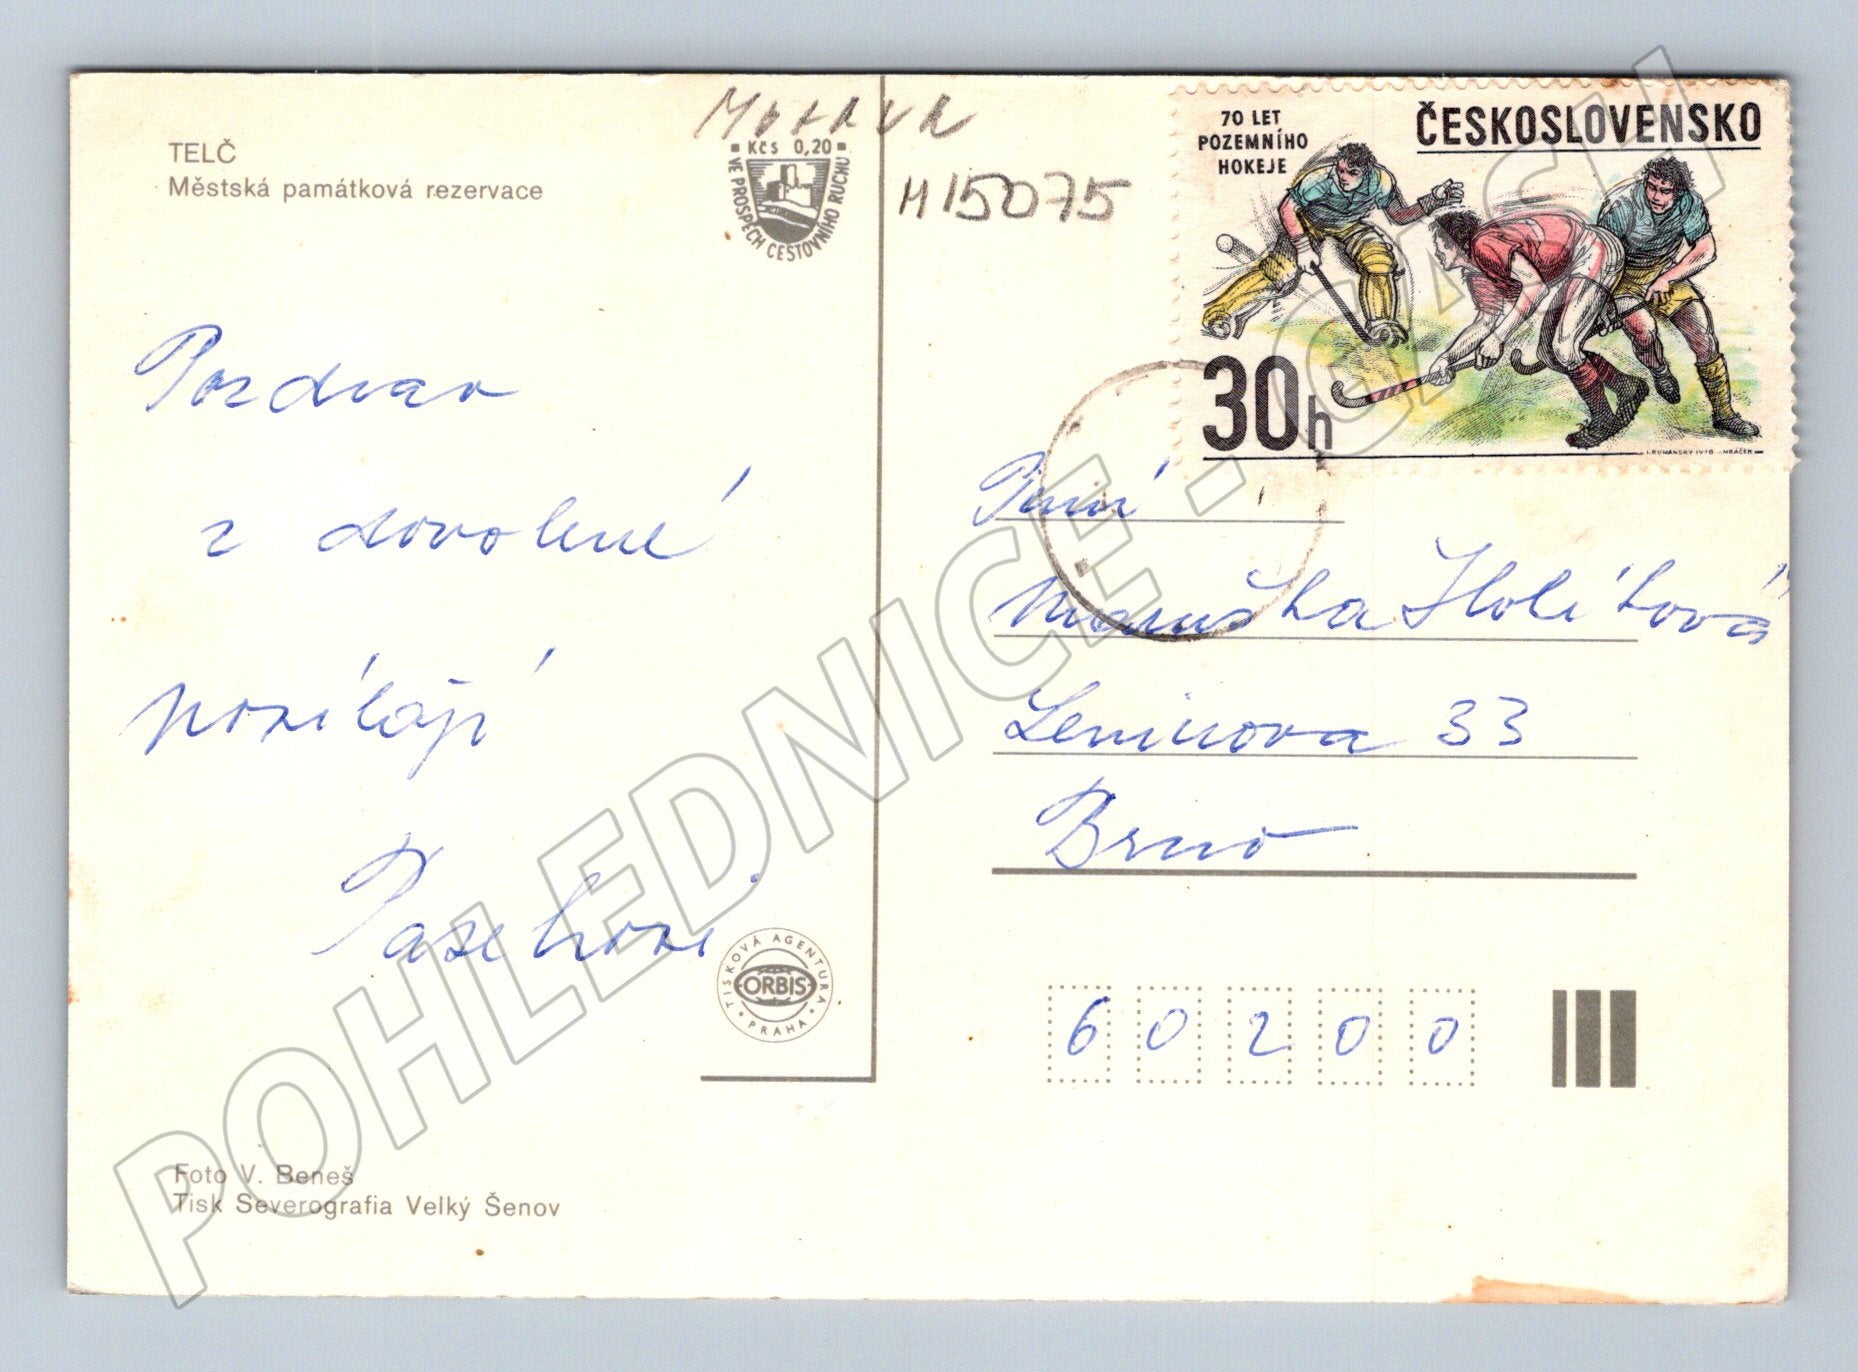 TELČ
Městská památková rezervace
Morava
Kčs 0,20
VE PROSPĚCH CESTOVNÍHO RUCHU
M15075
70 LET
POZEMNÍHO
HOKEJE
ČESKOSLOVENSKO
30h
I. RUMANSKÝ 1978 MRÁČEK
Pozdrav
z dovolené
posílají
Paní
Maruška Holíková
Leninova 33
Brno
TISKOVÁ AGENTURA
ORBIS
PRAHA
60200
Foto V. Beneš
Tisk Severografia Velký Šenov
POHLEDNICE - CASH